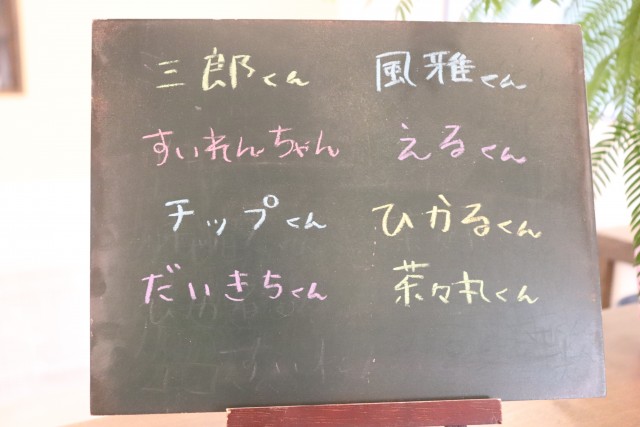 三郎くん 風雅くん
すいれんちゃん えるくん
チップくん ひかるくん
だいきちくん 茶々丸くん